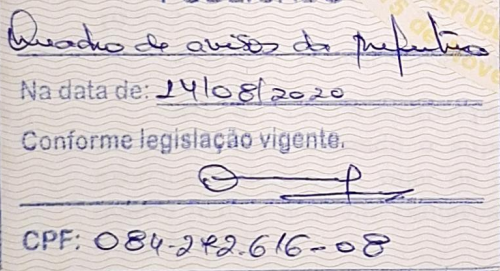 Quadro de avisos da prefeitura
Na data de: 14/08/2020
Conforme legislação vigente.
CPF: 084-242.616-08